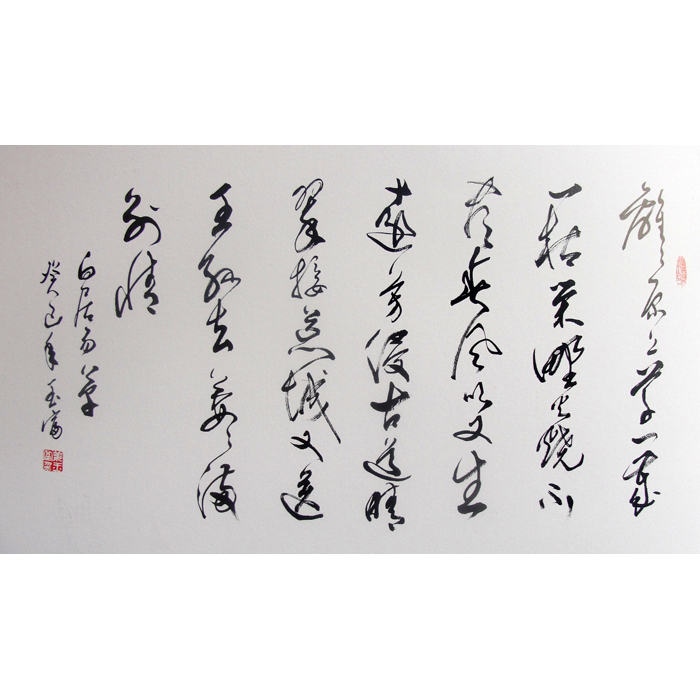 離々原上草一歲
一枯荣野火燒不
尽春风吹又生
遠芳侵古道晴
翠接荒城又送
王孙去萋々满
别情
白居易草
癸巳年玉